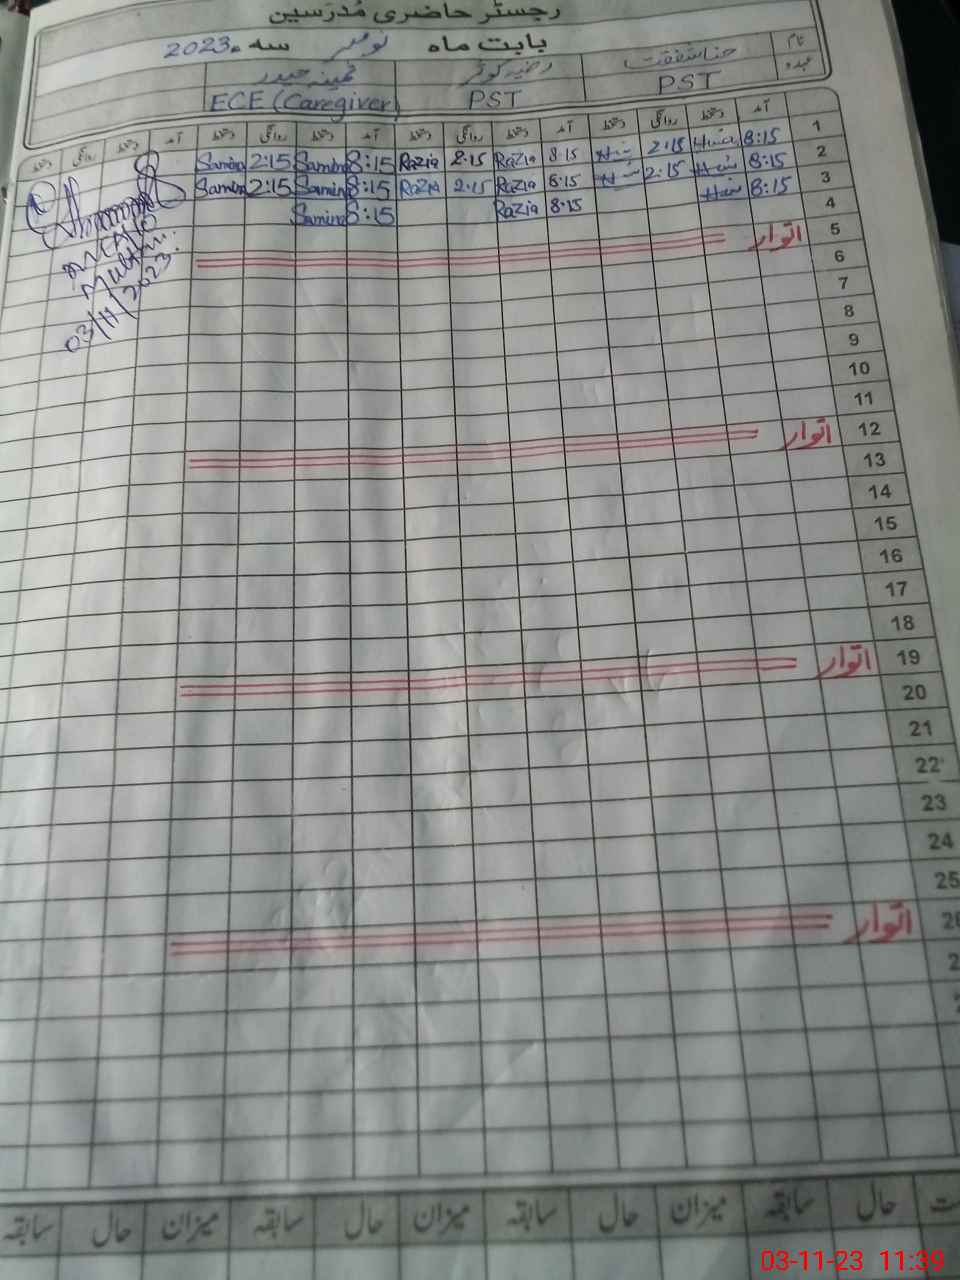 رجسٹر حاضری مُدرّسین
بابت ماہ نومبر سہ 2023ء
نام حنا شفقت رضیہ کوثر ثمینہ حیدر
عہدہ PST PST ECE (Caregiver)
آمد دستخط روانگی دستخط آمد دستخط روانگی دستخط آمد دستخط روانگی دستخط آمد دستخط روانگی دستخط
1 8:15 Hina 2:15 8:15 Razia 2:15 Razia 8:15 Samina 2:15 Samina
2 8:15 2:15 8:15 Razia 2:15 Razia 8:15 Samina 2:15 Samina
3 8:15 8:15 Razia 8:15 Samina
4
5 اتوار
6
7
8
9
10
11
12 اتوار
13
14
15
16
17
18
19 اتوار
20
21
22
23
24
25
26 اتوار
Multan
03/11/2023
حال سابقہ میزان حال سابقہ میزان حال سابقہ میزان حال سابقہ
03-11-23 11:39